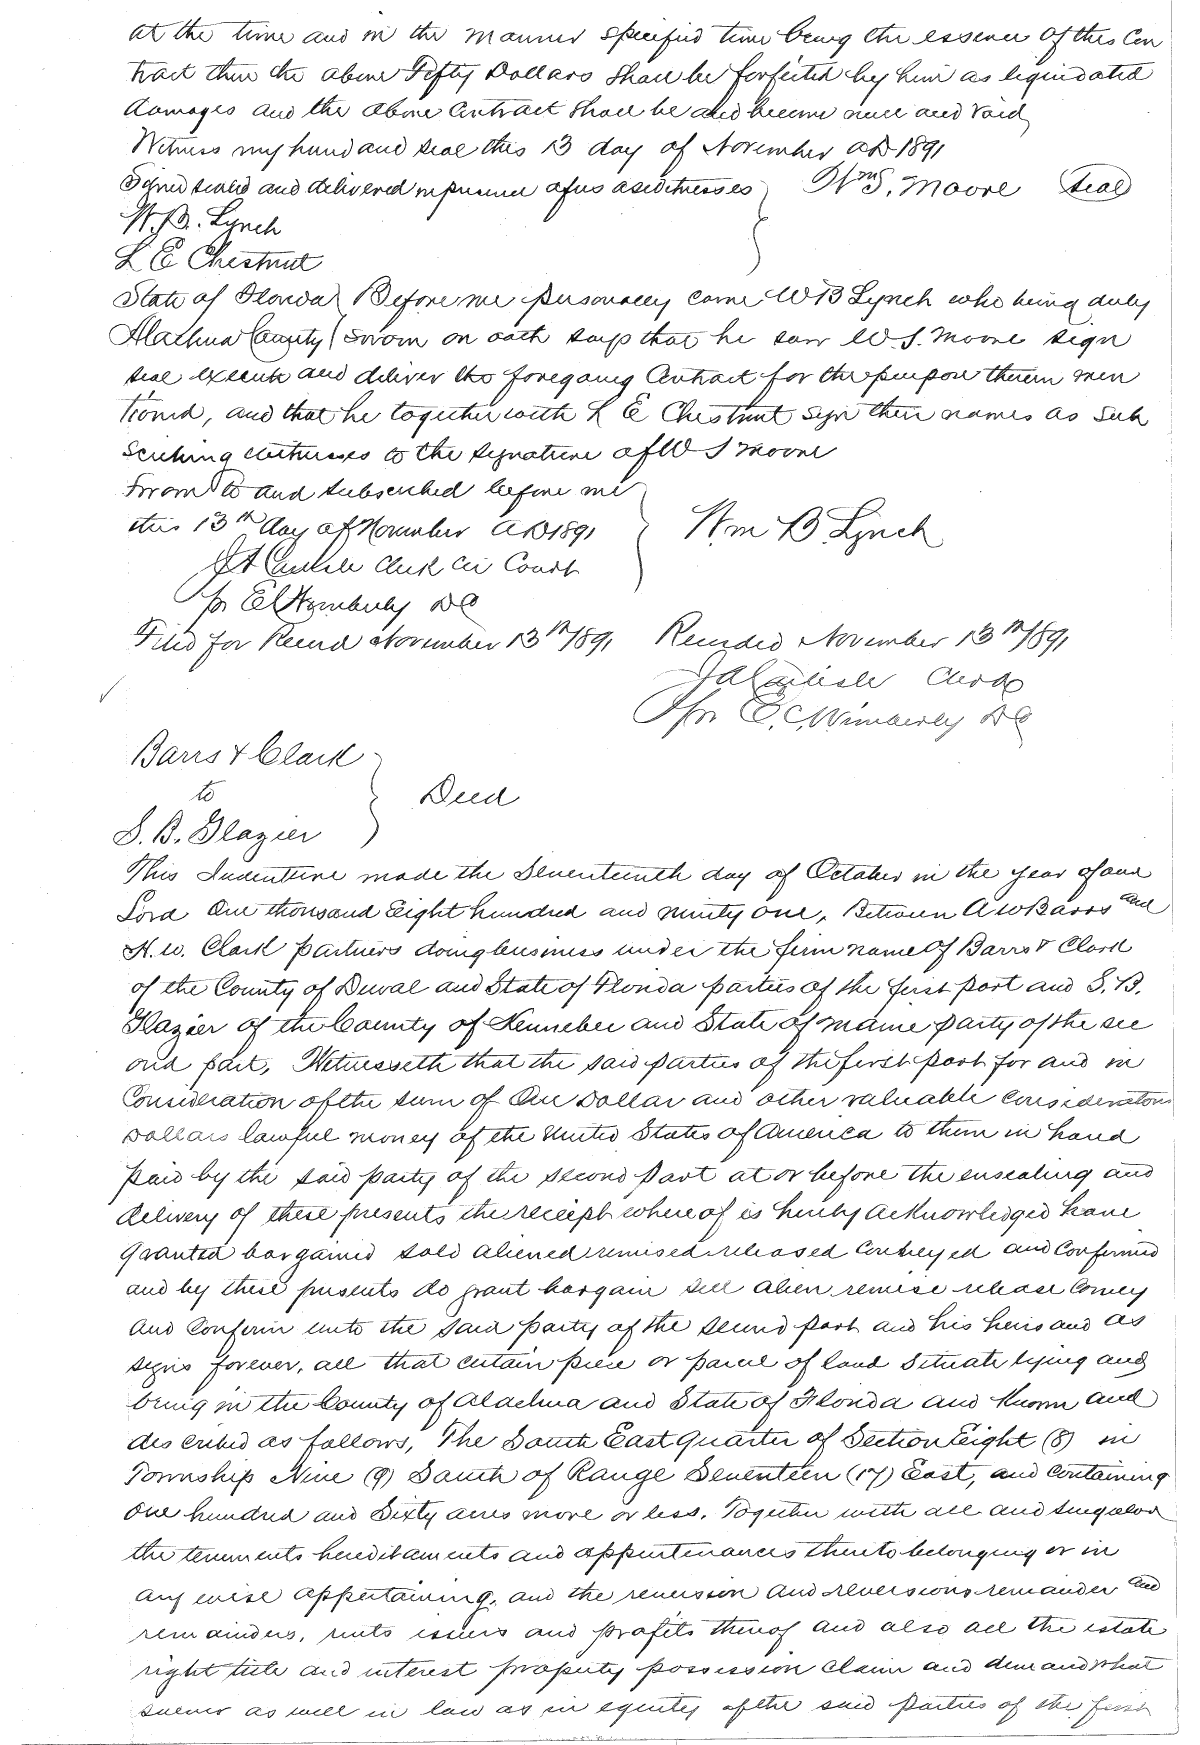 at the time and in the manner specified time being the essence of this Con
tract then the above Fifty Dollars shall be forfeited by him as liquidated
damages and the above Contract shall be and become null and void
Witness my hand and seal this 13 day of November AD 1891
Signed sealed and delivered in presence of us as witnesses } Wm S. Moore (Seal)
W. B. Lynch
L E Chestnut
State of Florida } Before me personally came W B Lynch who being duly
Alachua County } sworn on oath says that he saw W. S. Moore sign
seal execute and deliver the foregoing Contract for the purpose therein men
tioned, and that he together with L E Chestnut sign their names as sub
scribing witnesses to the signature of W S Moore
Sworn to and subscribed before me
this 13th day of November AD 1891 } Wm B Lynch
J A Carlisle Clerk Cir Court
pr E C Wimberly DC
Filed for Record November 13th/891 Recorded November 13th/891
J A Carlisle Clerk
pr E. C. Wimberly DC
Barrs & Clark
to } Deed
S. B. Glazier
This Indenture made the Seventeenth day of October in the year of our
Lord One thousand Eight hundred and ninety one, Between A W Barrs and
H. W. Clark partners doing business under the firm name of Barrs & Clark
of the County of Duval and State of Florida parties of the first part and S. B.
Glazier of the County of Kennebec and State of Maine party of the sec
ond part, Witnesseth that the said parties of the first part for and in
Consideration of the sum of One Dollar and other valuable considerations
Dollars lawful money of the United States of America to them in hand
paid by the said party of the second part at or before the ensealing and
delivery of these presents the receipt whereof is hereby acknowledged have
granted bargained sold aliened remised released conveyed and confirmed
and by these presents do grant bargain sell alien remise release convey
and confirm unto the said party of the second part and his heirs and as
signs forever, all that certain piece or parcel of land situate lying and
being in the County of Alachua and State of Florida and known and
described as follows, The South East Quarter of Section Eight (8) in
Township Nine (9) South of Range Seventeen (17) East, and containing
one hundred and sixty acres more or less. Together with all and singular
the tenements hereditaments and appurtenances thereto belonging or in
any wise appertaining, and the reversion and reversions remainder and
remainders, rents issues and profits thereof and also all the estate
right title and interest property possession claim and demand what
soever as well in law as in equity of the said parties of the first